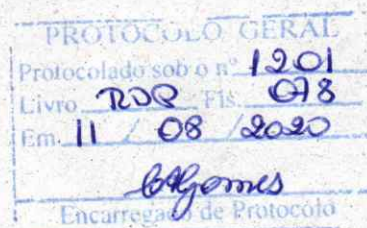 PROTOCOLO GERAL
Protocolado sob o nº 1201
Livro RDP Fls. 078
Em 11 / 08 / 2020
Gomes
Encarregado de Protocolo